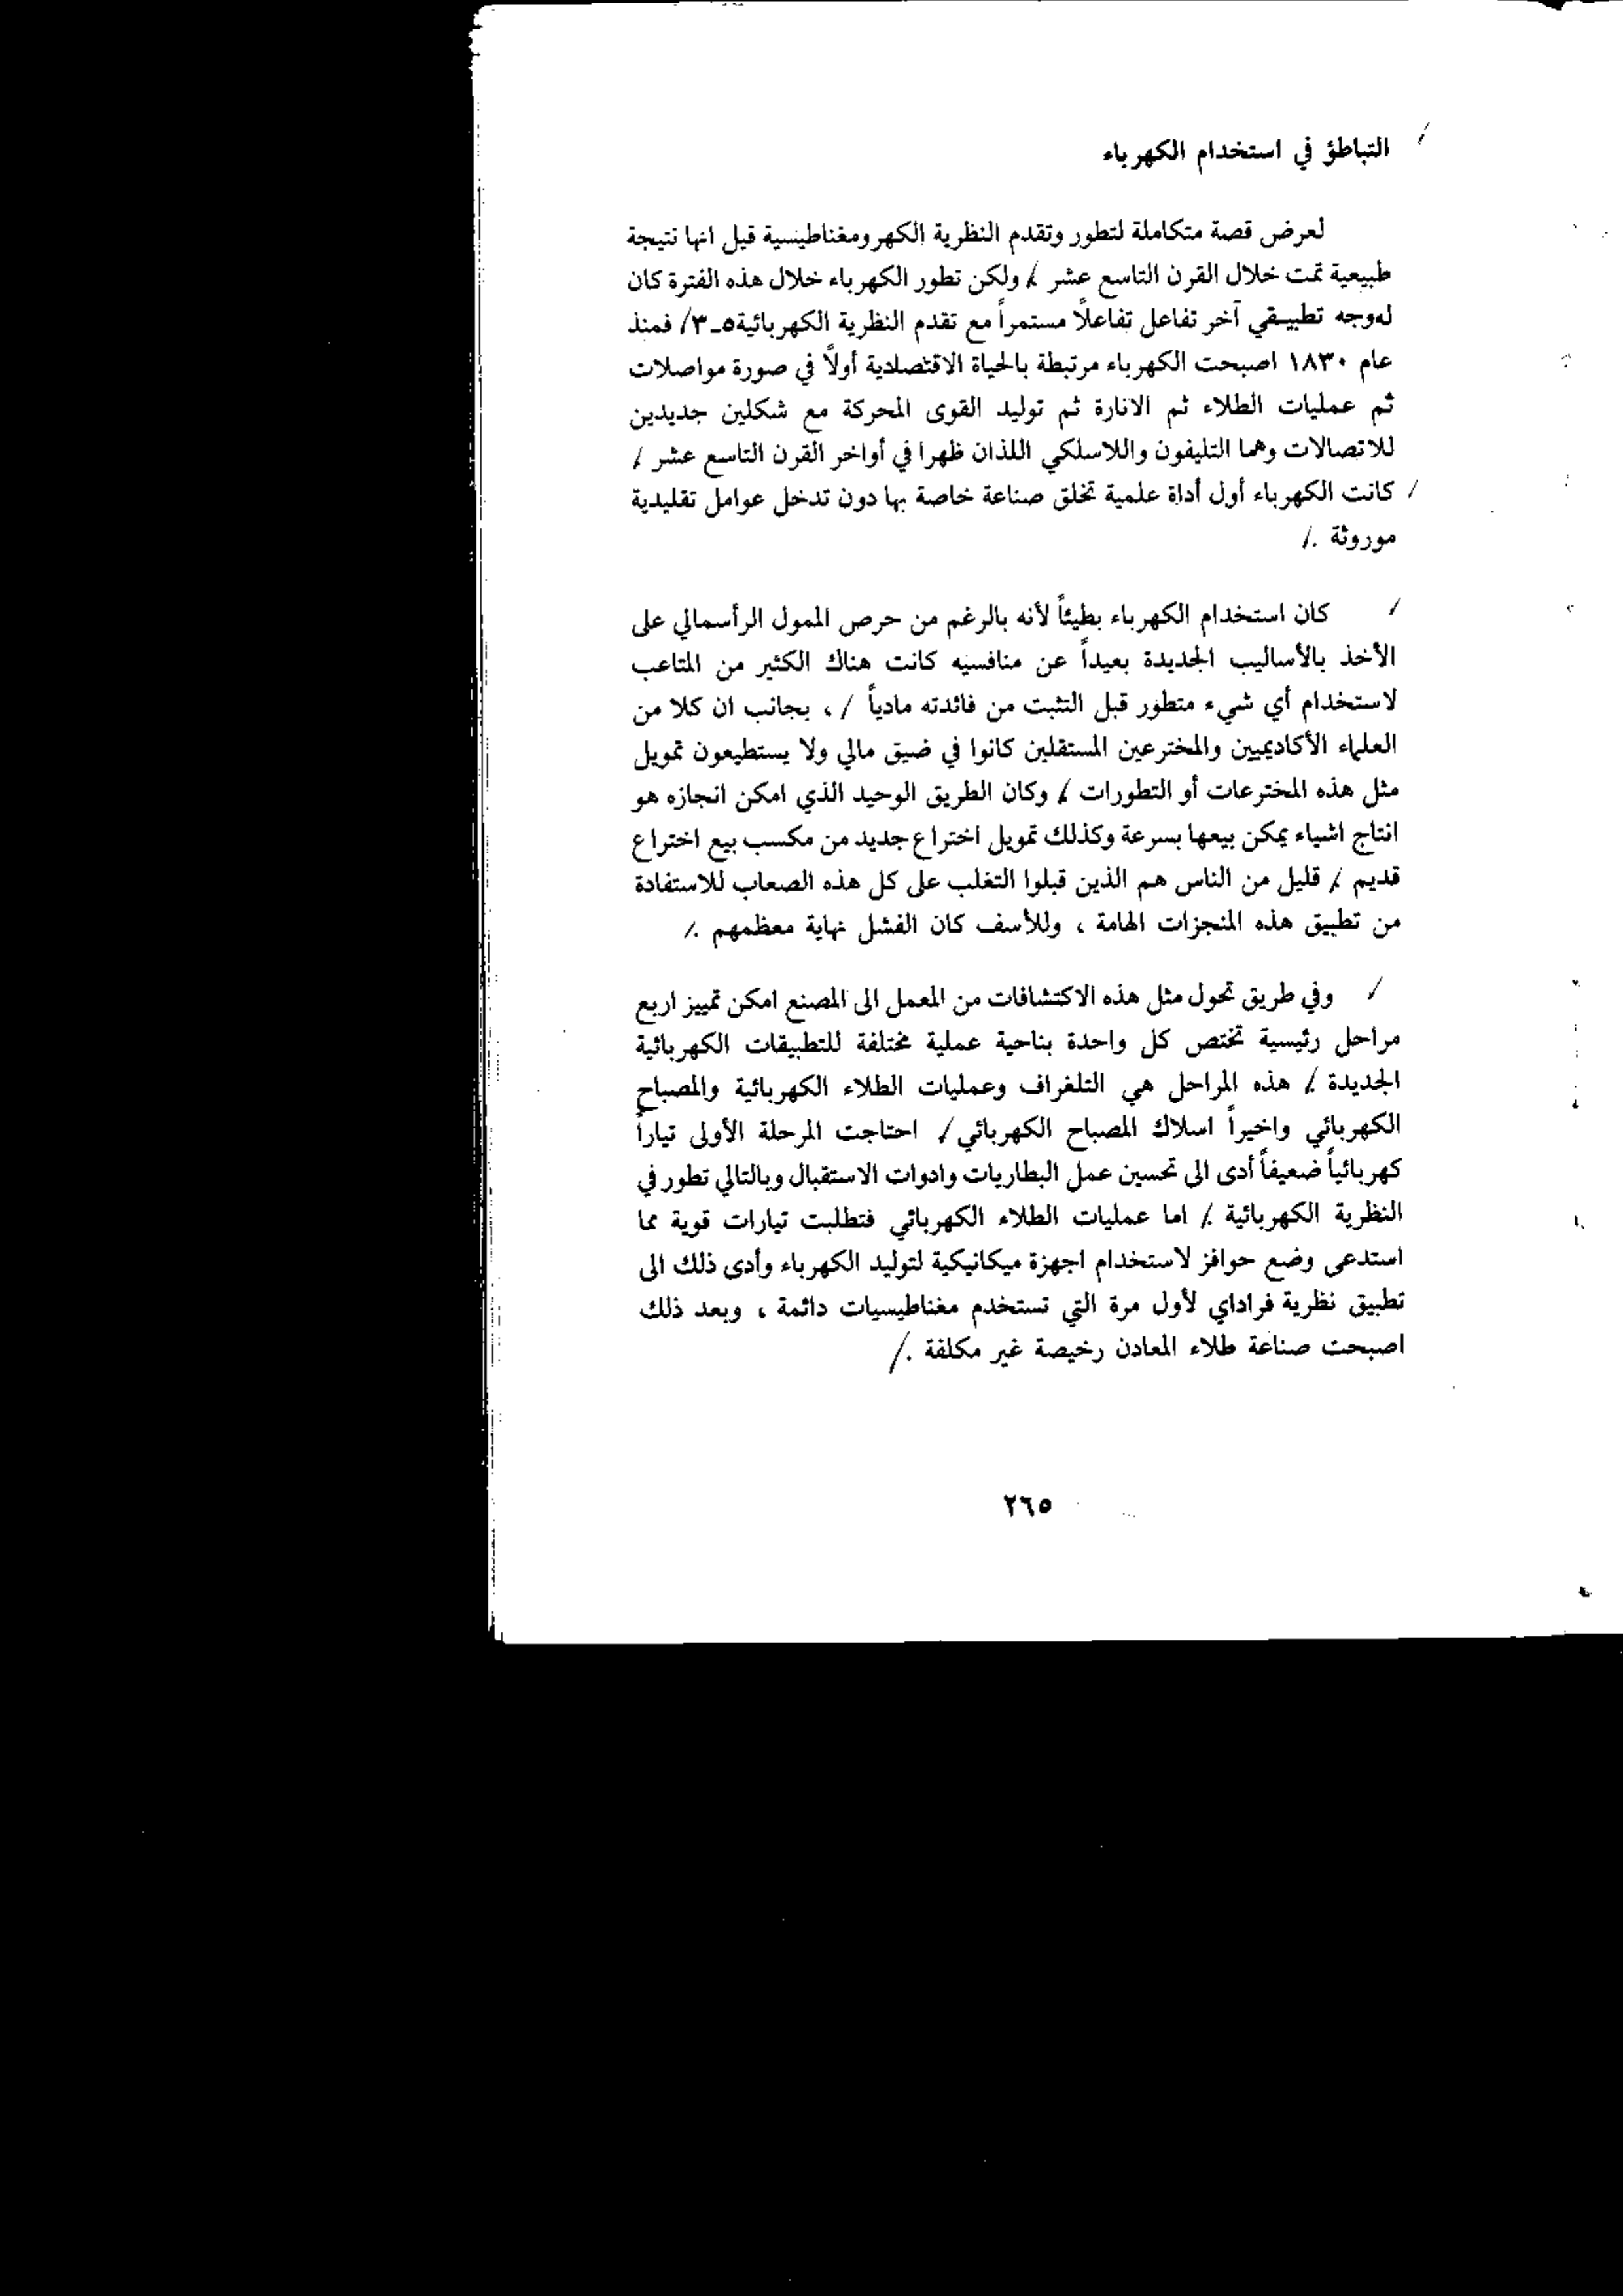 التباطؤ في استخدام الكهرباء
لعرض قصة متكاملة لتطور وتقدم النظرية الكهرومغناطيسية قيل انها نتيجة
طبيعية تمت خلال القرن التاسع عشر / ولكن تطور الكهرباء خلال هذه الفترة كان
له وجه تطبيقي آخر تفاعل تفاعلاً مستمراً مع تقدم النظرية الكهربائية ٥-٣/ فمنذ
عام ١٨٣٠ اصبحت الكهرباء مرتبطة بالحياة الاقتصادية أولاً في صورة مواصلات
ثم عمليات الطلاء ثم الانارة ثم توليد القوى المحركة مع شكلين جديدين
للاتصالات وهما التليفون واللاسلكي اللذان ظهرا في أواخر القرن التاسع عشر /
/ كانت الكهرباء أول أداة علمية تخلق صناعة خاصة بها دون تدخل عوامل تقليدية
موروثة ./
/ كان استخدام الكهرباء بطيئاً لأنه بالرغم من حرص الممول الرأسمالي على
الأخذ بالأساليب الجديدة بعيداً عن منافسيه كانت هناك الكثير من المتاعب
لاستخدام أي شيء متطور قبل التثبت من فائدته مادياً / ، بجانب ان كلا من
العلماء الأكاديميين والمخترعين المستقلين كانوا في ضيق مالي ولا يستطيعون تمويل
مثل هذه المخترعات أو التطورات / وكان الطريق الوحيد الذي امكن انجازه هو
انتاج اشياء يمكن بيعها بسرعة وكذلك تمويل اختراع جديد من مكسب بيع اختراع
قديم / قليل من الناس هم الذين قبلوا التغلب على كل هذه الصعاب للاستفادة
من تطبيق هذه المنجزات الهامة ، وللأسف كان الفشل نهاية معظمهم ./
/ وفي طريق تحول مثل هذه الاكتشافات من المعمل الى المصنع امكن تمييز اربع
مراحل رئيسية تختص كل واحدة بناحية عملية مختلفة للتطبيقات الكهربائية
الجديدة / هذه المراحل هي التلغراف وعمليات الطلاء الكهربائية والمصباح
الكهربائي واخيراً اسلاك المصباح الكهربائي / احتاجت المرحلة الأولى تياراً
كهربائياً ضعيفاً أدى الى تحسين عمل البطاريات وادوات الاستقبال وبالتالي تطور في
النظرية الكهربائية / اما عمليات الطلاء الكهربائي فتطلبت تيارات قوية مما
استدعى وضع حوافز لاستخدام اجهزة ميكانيكية لتوليد الكهرباء وأدى ذلك الى
تطبيق نظرية فراداي لأول مرة التي تستخدم مغناطيسيات دائمة ، وبعد ذلك
اصبحت صناعة طلاء المعادن رخيصة غير مكلفة ./
٢٦٥